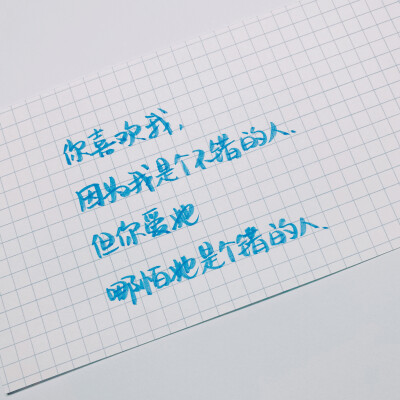 你喜欢我,
因为我是个不错的人.
但你爱她
哪怕她是个错的人.